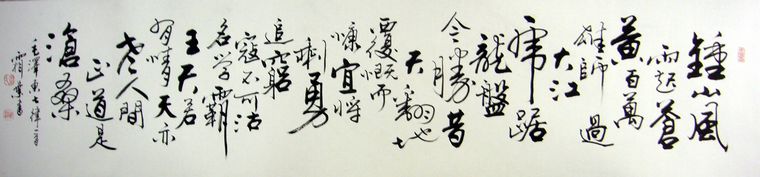 鍾山風
雨起蒼
黃百萬
雄師過
大江
虎踞
龍盤
今勝昔
天翻地
覆慨而
慷宜將
剩勇
追窮
寇不可沽
名學霸
王天若
有情天亦
老人間
正道是
滄桑
毛澤東七律一首
書